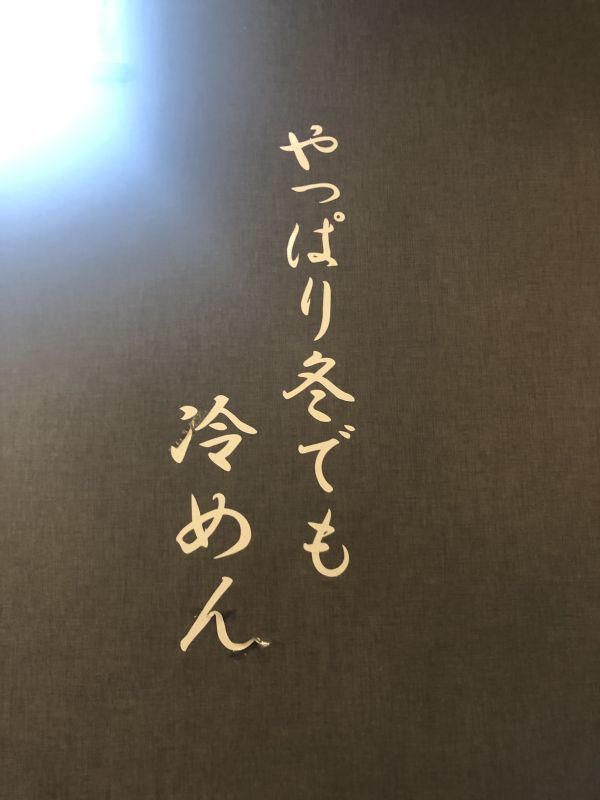 やっぱり冬でも
冷めん